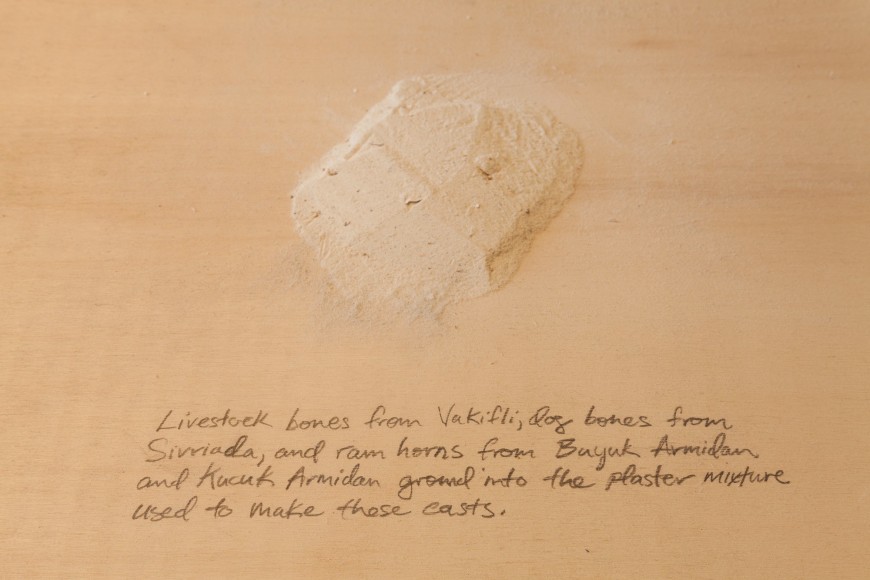 Livestock bones from Vakifli, dog bones from
Sivriada, and ram horns from Buyuk Armidan
and Kucuk Armidan ground into the plaster mixture
used to make these casts.